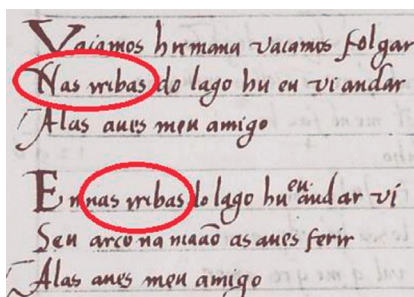 Vaiamos hirmana vaiamos folgar
Nas rribas do lago hu eu vi andar
Alas aues meu amigo
En nas rribas do lago hu eu andar vi
Seu arco na maão as aues ferir
Alas aues meu amigo